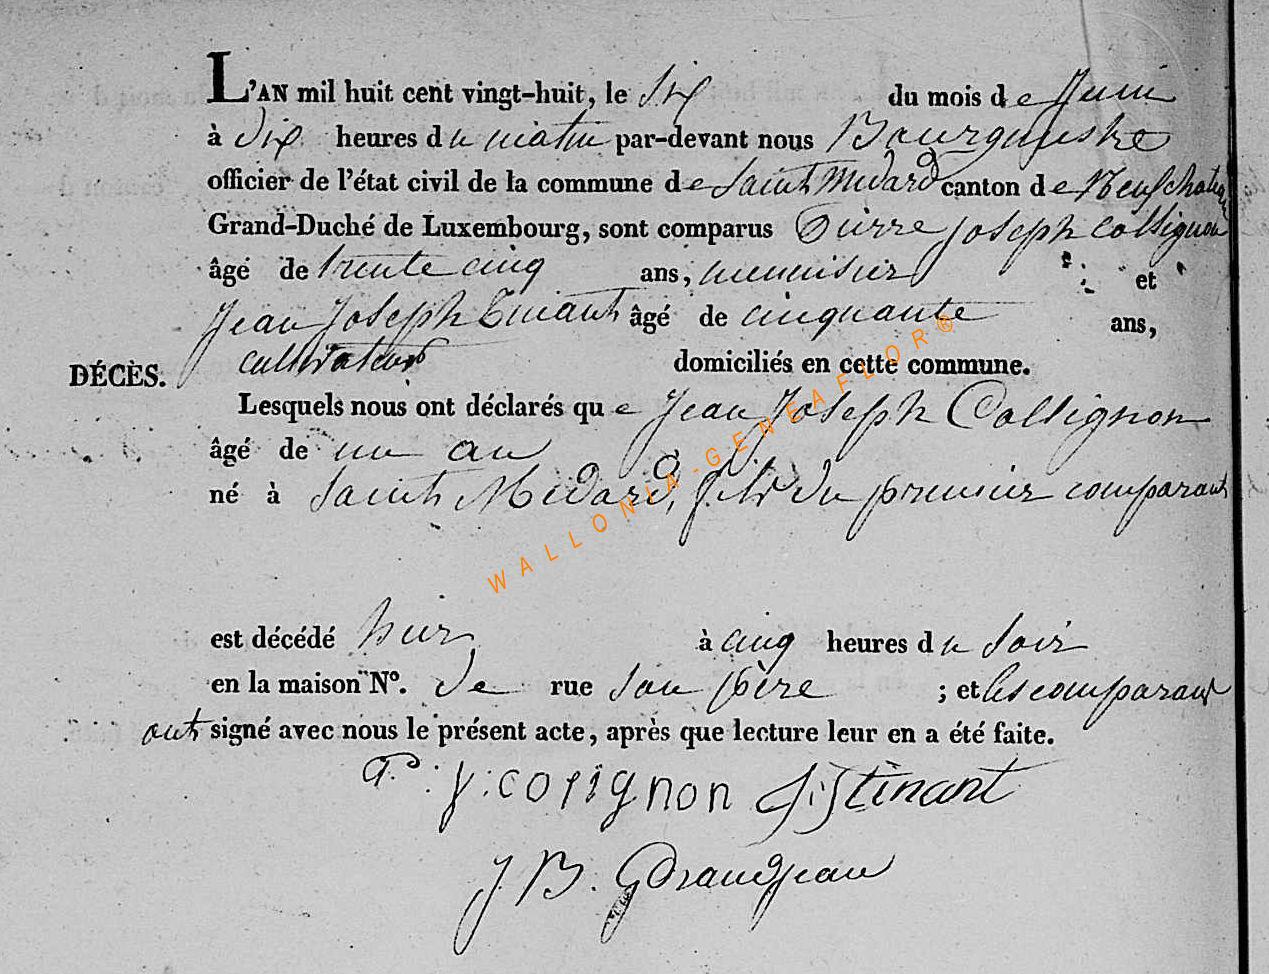 L'AN mil huit cent vingt-huit, le Six du mois de Juin
à dix heures du matin par-devant nous Bourguestre
officier de l'état civil de la commune de Saint Médard canton de Neufchateau
Grand-Duché de Luxembourg, sont comparus Pierre Joseph Collignon
âgé de trente cinq ans, menuisier et
Jean Joseph Tinant âgé de cinquante ans,
cultivateur domiciliés en cette commune.
DÉCÈS.
Lesquels nous ont déclarés que Jean Joseph Collignon
âgé de un an
né à Saint Médard, fils du premier comparant
est décédé hier à cinq heures du soir
en la maison N°. de rue son père ; et les comparant
ont signé avec nous le présent acte, après que lecture leur en a été faite.
P: J: colignon J: J tinant
J. B. Grandjean
WALLONIA-GENEAFLOR®